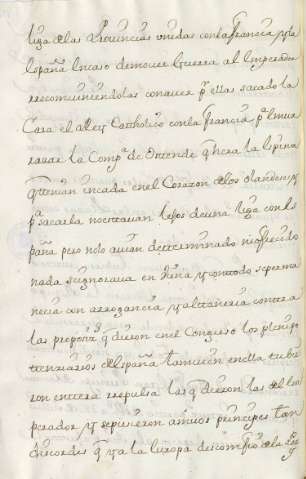 liga de las Provincias unidas con la francia, y la
españa en caso de mover Guerra al Emperador
reconviniendolas con aver pr. ellas sacado la
Cara el Rey Catholico con la francia pa.
la Compa. de Ostende q hera la espina
q tenian en el Corazon de los olandeses, y
pa. sacarla no estavan lejos de una liga con es
paña pero no lo avian determinado ni ofrecido
nada seignorava en Viena, y con todo se perma
necia con arrogancia, y altaneria contra
las propons. q dieron en el Congreso los plenipo
tenciarios de España tambien en ella tubie
ron entera repulsa las q dieron las del Em
perador, y se pusieron ambos principes tan
discordes q ya la Europa desconfio de la Paz
y